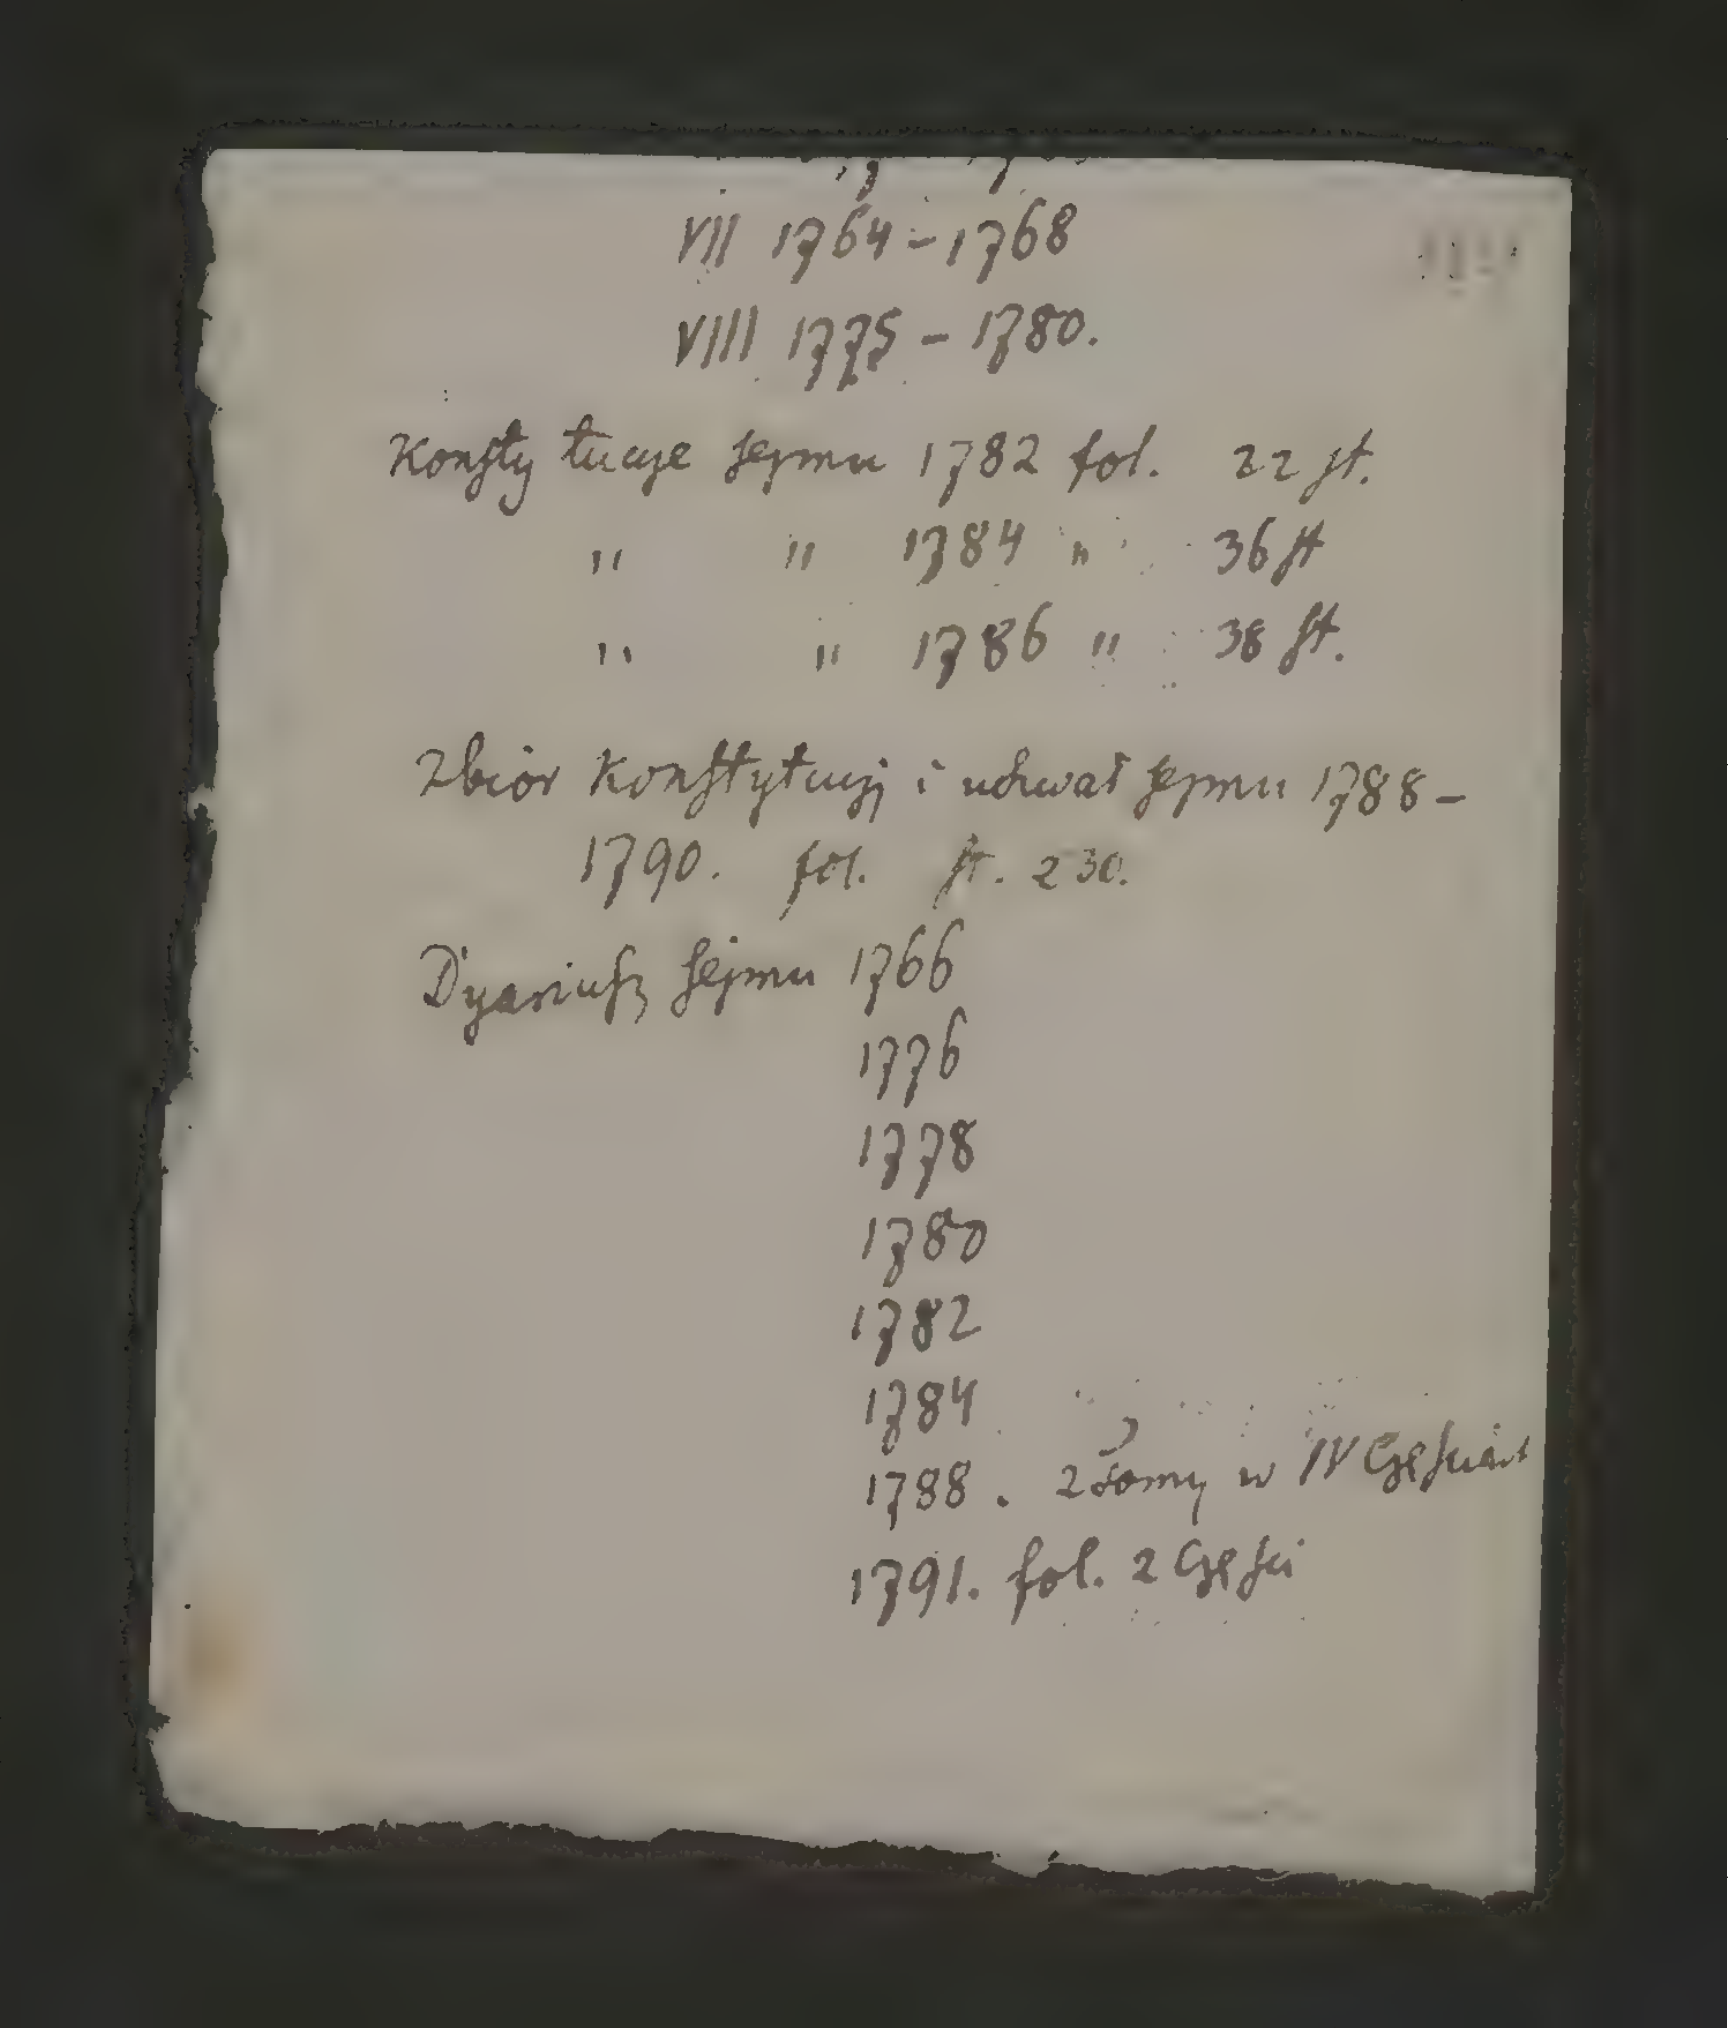 VII 1764 - 1768
VIII 1775 - 1780.
Konſtytucye ſejmu 1782 fol. 22 ſt.
" " 1784 " 36 ſt
" " 1786 " 38 ſt.
Zbior Konſtytucyj i uchwał ſejmu 1788 -
1790. fol. ſt. 230.
Dyariuſz ſejmu 1766
1776
1778
1780
1782
1784
1788. 2 tomy w IV Częſciach
1791. fol. 2 Częſci